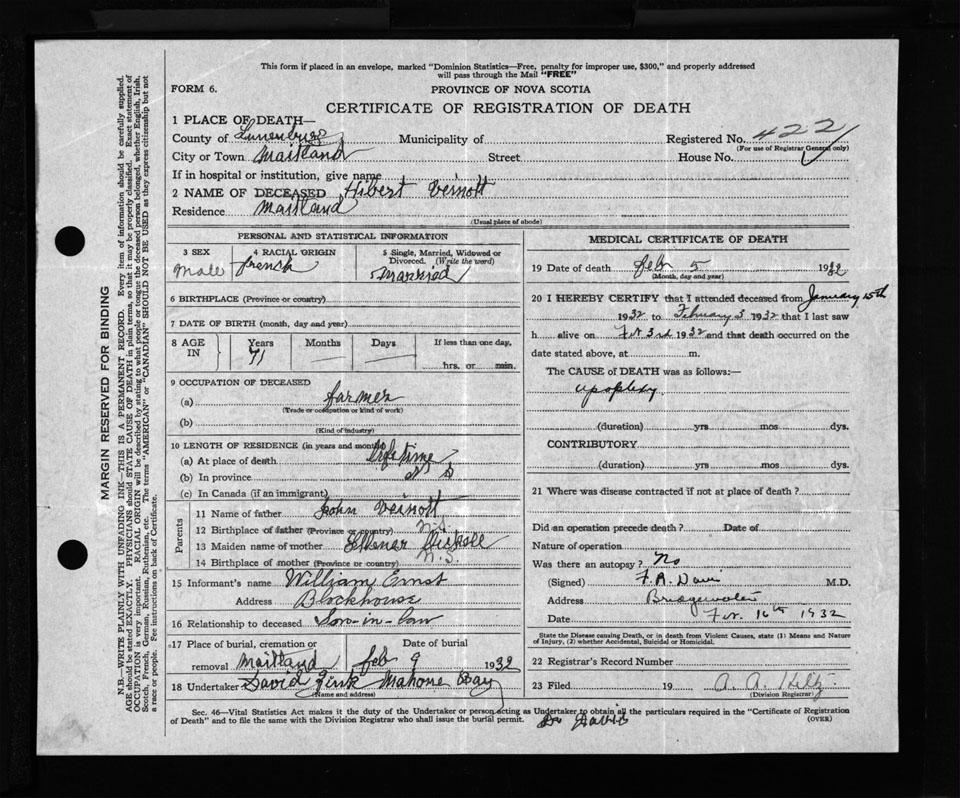 This form if placed in an envelope, marked "Dominion Statistics—Free, penalty for improper use, $300," and properly addressed
will pass through the Mail "FREE"
FORM 6.
PROVINCE OF NOVA SCOTIA
CERTIFICATE OF REGISTRATION OF DEATH
1 PLACE OF DEATH—
County of Lunenburg Municipality of Registered No. 422
(For use of Registrar General only)
City or Town Maitland Street House No.
If in hospital or institution, give name
2 NAME OF DECEASED Hibert Veinott
Residence Maitland
(Usual place of abode)
PERSONAL AND STATISTICAL INFORMATION
3 SEX
Male
4 RACIAL ORIGIN
French
5 Single, Married, Widowed or
Divorced. (Write the word)
Married
6 BIRTHPLACE (Province or country)
7 DATE OF BIRTH (month, day and year)
8 AGE
IN
Years
71
Months
Days
If less than one day,
hrs. or min.
9 OCCUPATION OF DECEASED
(a) farmer
(Trade or occupation or kind of work)
(b)
(Kind of industry)
10 LENGTH OF RESIDENCE (in years and months)
(a) At place of death lifetime
(b) In province
(c) In Canada (if an immigrant)
Parents
11 Name of father John Veinott
12 Birthplace of father (Province or country) N.S.
13 Maiden name of mother
14 Birthplace of mother (Province or country) N.S.
15 Informant's name William Ernst
Address Blockhouse
16 Relationship to deceased Son-in-law
17 Place of burial, cremation or
removal Maitland
Date of burial
feb 9 1932
18 Undertaker David Zink Mahone Bay
(Name and address)
MEDICAL CERTIFICATE OF DEATH
19 Date of death feb 5 1932
(Month, day and year)
20 I HEREBY CERTIFY that I attended deceased from January 15th
1932 to February 3 1932 that I last saw
h alive on Feb 3rd 1932 and that death occurred on the
date stated above, at m.
The CAUSE of DEATH was as follows:—
apoplexy
(duration) yrs mos dys.
CONTRIBUTORY
(duration) yrs mos dys.
21 Where was disease contracted if not at place of death?
Did an operation precede death? Date of
Nature of operation
Was there an autopsy? No
(Signed) F. A. Davis M.D.
Address Bridgewater
Date Feb. 16th 1932
State the Disease causing Death, or in death from Violent Causes, state (1) Means and Nature
of Injury, (2) whether Accidental, Suicidal or Homicidal.
22 Registrar's Record Number
23 Filed 19 A. A.
(Division Registrar)
Sec. 46—Vital Statistics Act makes it the duty of the Undertaker or person acting as Undertaker to obtain all the particulars required in the "Certificate of Registration
of Death" and to file the same with the Division Registrar who shall issue the burial permit. Dr Davis (OVER)
MARGIN RESERVED FOR BINDING
N.B.—WRITE PLAINLY WITH UNFADING INK—THIS IS A PERMANENT RECORD. Every item of information should be carefully supplied.
AGE should be stated EXACTLY. PHYSICIANS should STATE CAUSE OF DEATH in plain terms, so that it may be properly classified. Exact statement of
OCCUPATION is very important. RACIAL ORIGIN will be described by stating to what people or tongue the deceased person belonged, whether English, Irish,
Scotch, French, German, Russian, Ruthenian, etc. The terms "AMERICAN" or "CANADIAN" SHOULD NOT BE USED as they express citizenship but not
a race or people. See instructions on back of Certificate.